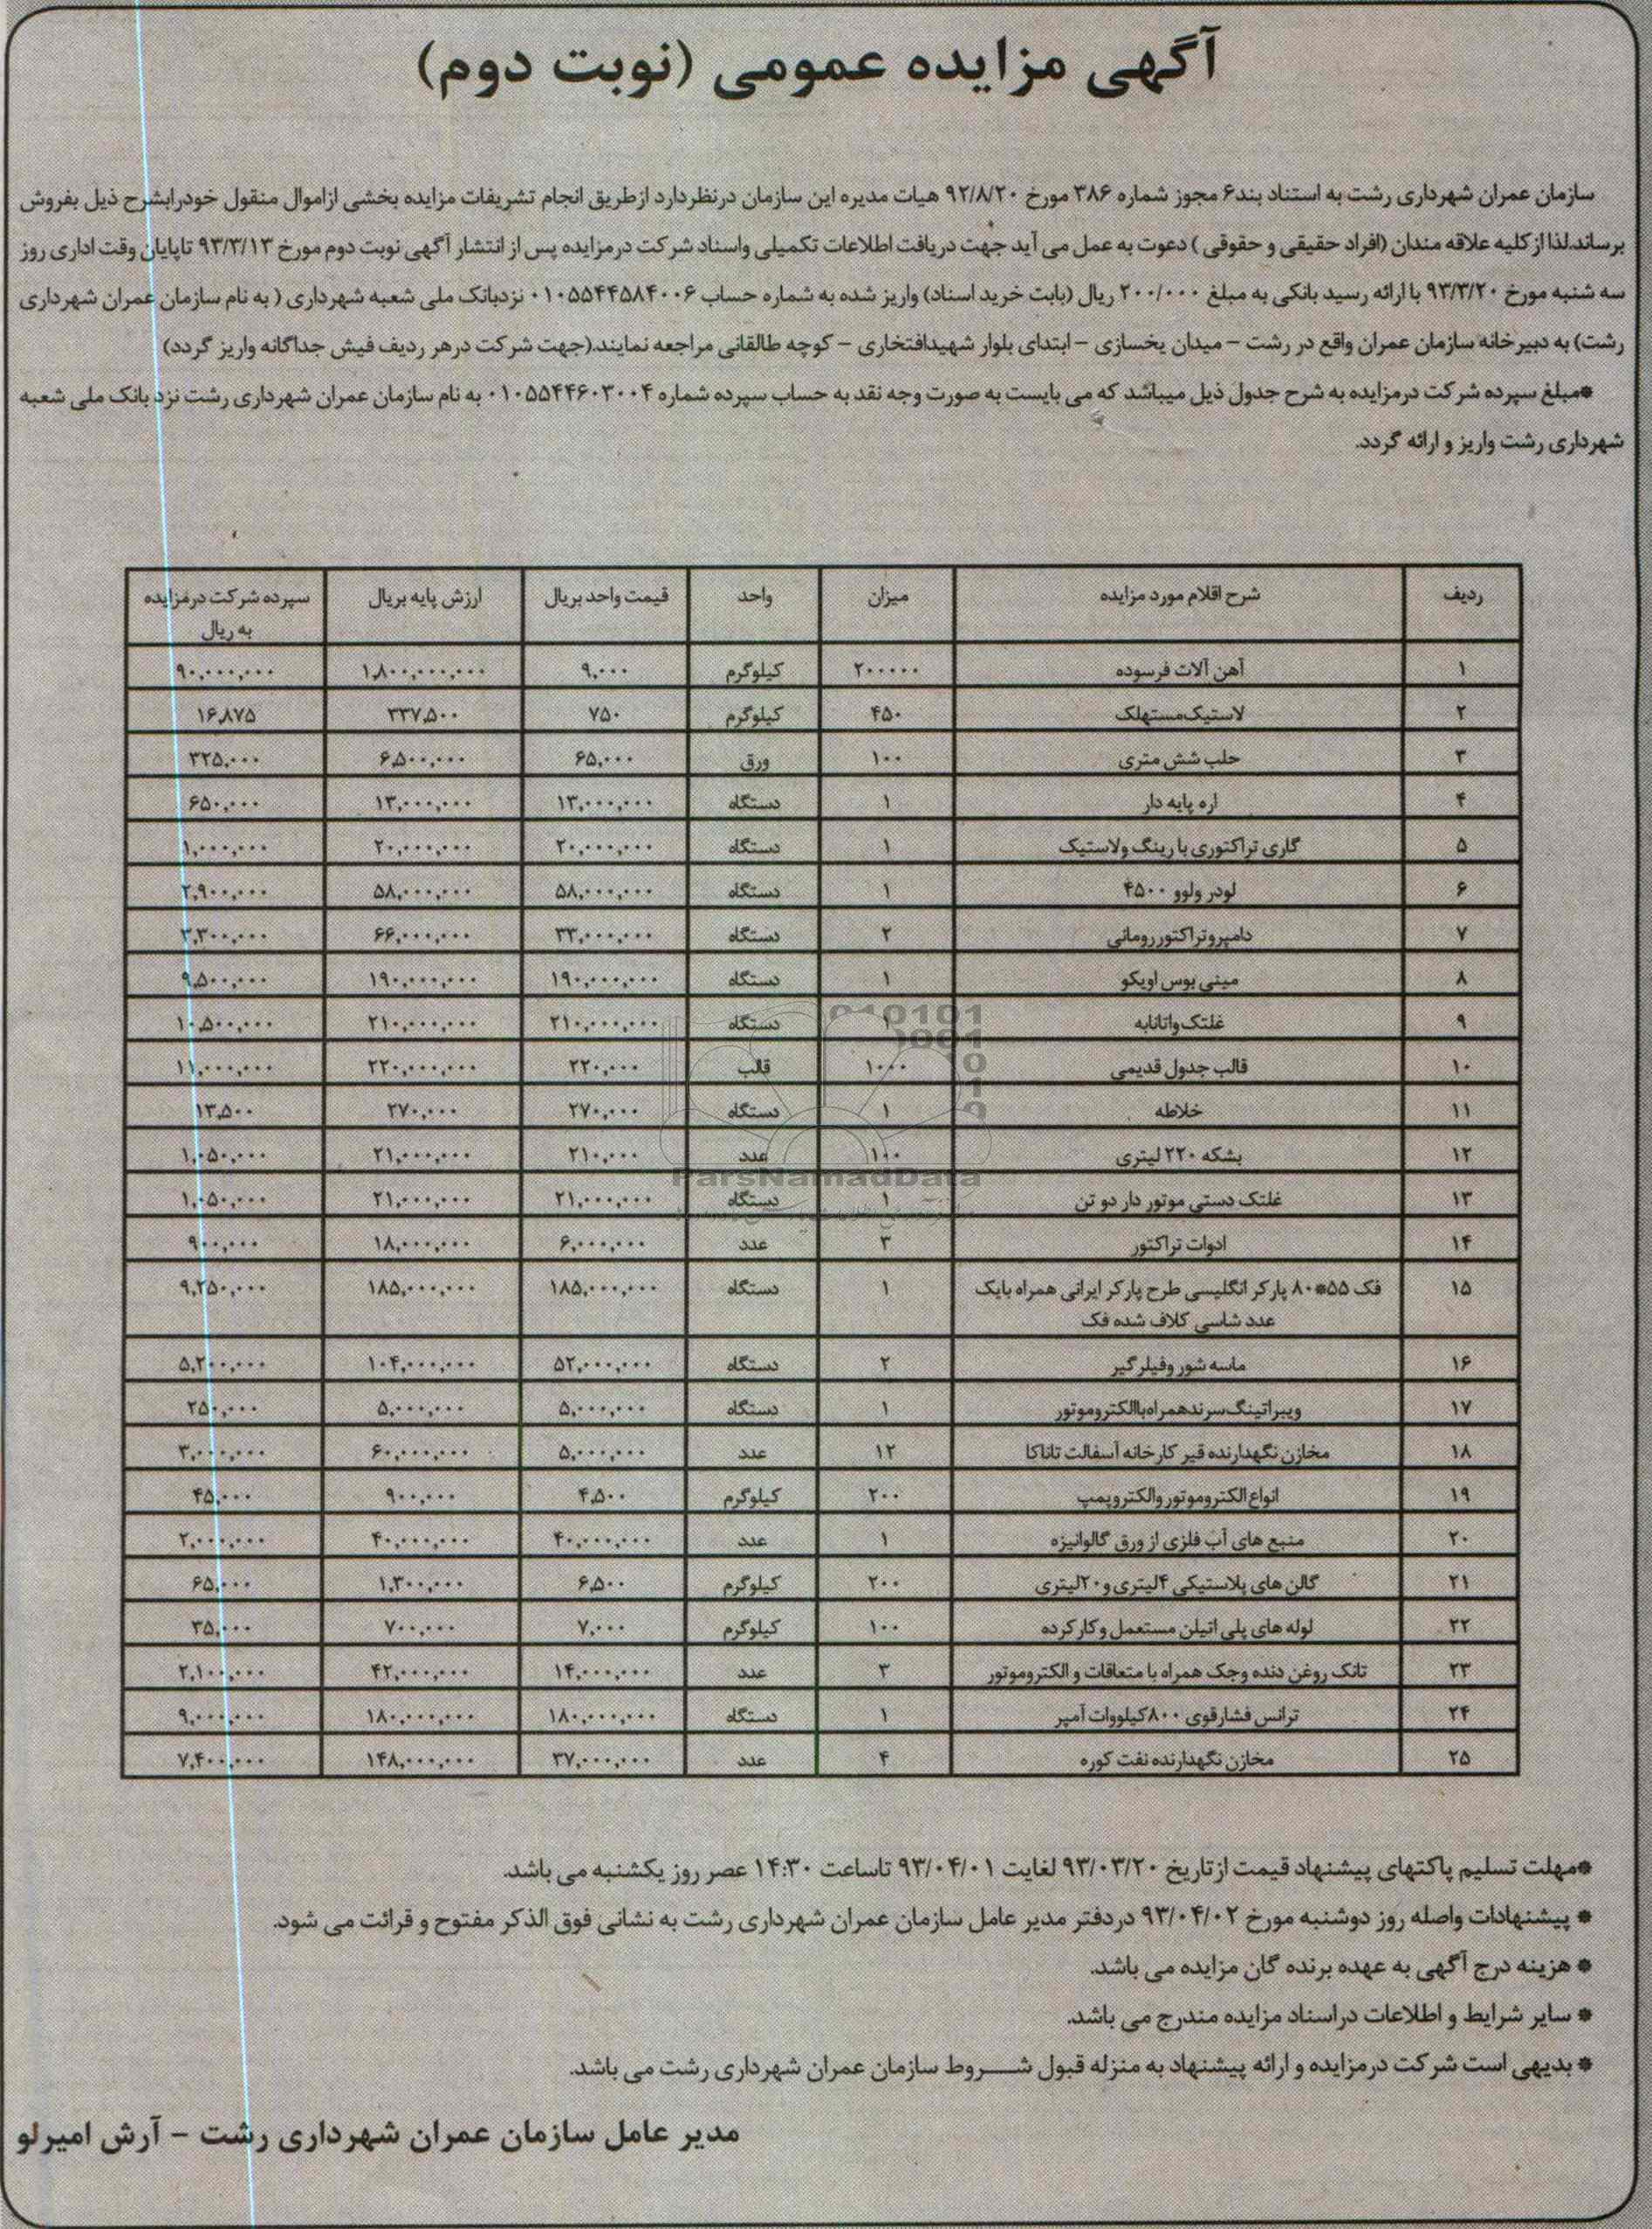 آگهی مزایده عمومی (نوبت دوم)
سازمان عمران شهرداری رشت به استناد بند۶ مجوز شماره ۳۸۶ مورخ ۹۲/۸/۲۰ هیات مدیره این سازمان درنظردارد ازطریق انجام تشریفات مزایده بخشی ازاموال منقول خودرابشرح ذیل بفروش
برساند.لذا ازکلیه علاقه مندان (افراد حقیقی و حقوقی ) دعوت به عمل می آید جهت دریافت اطلاعات تکمیلی واسناد شرکت درمزایده پس از انتشار آگهی نوبت دوم مورخ ۹۳/۳/۱۳ تاپایان وقت اداری روز
سه شنبه مورخ ۹۳/۳/۲۰ با ارائه رسید بانکی به مبلغ ۲۰۰/۰۰۰ ریال (بابت خرید اسناد) واریز شده به شماره حساب ۰۱۰۵۵۴۴۵۸۴۰۰۶ نزدبانک ملی شعبه شهرداری ( به نام سازمان عمران شهرداری
رشت) به دبیرخانه سازمان عمران واقع در رشت – میدان یخسازی – ابتدای بلوار شهیدافتخاری – کوچه طالقانی مراجعه نمایند.(جهت شرکت درهر ردیف فیش جداگانه واریز گردد)
*مبلغ سپرده شرکت درمزایده به شرح جدول ذیل میباشد که می بایست به صورت وجه نقد به حساب سپرده شماره ۰۱۰۵۵۴۴۶۰۳۰۰۴ به نام سازمان عمران شهرداری رشت نزد بانک ملی شعبه
شهرداری رشت واریز و ارائه گردد.
ردیف شرح اقلام مورد مزایده میزان واحد قیمت واحد بریال ارزش پایه بریال سپرده شرکت درمزایده
به ریال
۱ آهن آلات فرسوده ۲۰۰۰۰۰ کیلوگرم ۹,۰۰۰ ۱,۸۰۰,۰۰۰,۰۰۰ ۹۰,۰۰۰,۰۰۰
۲ لاستیک مستهلک ۴۵۰ کیلوگرم ۷۵۰ ۳۳۷,۵۰۰ ۱۶,۸۷۵
۳ حلب شش متری ۱۰۰ ورق ۶۵,۰۰۰ ۶,۵۰۰,۰۰۰ ۳۲۵,۰۰۰
۴ اره پایه دار ۱ دستگاه ۱۳,۰۰۰,۰۰۰ ۱۳,۰۰۰,۰۰۰ ۶۵۰,۰۰۰
۵ گاری تراکتوری با رینگ ولاستیک ۱ دستگاه ۲۰,۰۰۰,۰۰۰ ۲۰,۰۰۰,۰۰۰ ۱,۰۰۰,۰۰۰
۶ لودر ولوو ۴۵۰۰ ۱ دستگاه ۵۸,۰۰۰,۰۰۰ ۵۸,۰۰۰,۰۰۰ ۲,۹۰۰,۰۰۰
۷ دامپروتراکتوررومانی ۲ دستگاه ۳۳,۰۰۰,۰۰۰ ۶۶,۰۰۰,۰۰۰ ۳,۳۰۰,۰۰۰
۸ مینی بوس اویکو ۱ دستگاه ۱۹۰,۰۰۰,۰۰۰ ۱۹۰,۰۰۰,۰۰۰ ۹,۵۰۰,۰۰۰
۹ غلتک واتانابه ۱ دستگاه ۲۱۰,۰۰۰,۰۰۰ ۲۱۰,۰۰۰,۰۰۰ ۱۰,۵۰۰,۰۰۰
۱۰ قالب جدول قدیمی ۱۰۰۰ قالب ۲۲۰,۰۰۰ ۲۲۰,۰۰۰,۰۰۰ ۱۱,۰۰۰,۰۰۰
۱۱ خلاطه ۱ دستگاه ۲۷۰,۰۰۰ ۲۷۰,۰۰۰ ۱۳,۵۰۰
۱۲ بشکه ۲۲۰ لیتری ۱۰۰ عدد ۲۱۰,۰۰۰ ۲۱,۰۰۰,۰۰۰ ۱,۰۵۰,۰۰۰
۱۳ غلتک دستی موتور دار دو تن ۱ دستگاه ۲۱,۰۰۰,۰۰۰ ۲۱,۰۰۰,۰۰۰ ۱,۰۵۰,۰۰۰
۱۴ ادوات تراکتور ۳ عدد ۶,۰۰۰,۰۰۰ ۱۸,۰۰۰,۰۰۰ ۹۰۰,۰۰۰
۱۵ فک ۵۵*۸۰ پارکر انگلیسی طرح پارکر ایرانی همراه بایک ۱ دستگاه ۱۸۵,۰۰۰,۰۰۰ ۱۸۵,۰۰۰,۰۰۰ ۹,۲۵۰,۰۰۰
عدد شاسی کلاف شده فک
۱۶ ماسه شور وفیلر گیر ۲ دستگاه ۵۲,۰۰۰,۰۰۰ ۱۰۴,۰۰۰,۰۰۰ ۵,۲۰۰,۰۰۰
۱۷ ویبراتینگ سرندهمراه باالکتروموتور ۱ دستگاه ۵,۰۰۰,۰۰۰ ۵,۰۰۰,۰۰۰ ۲۵۰,۰۰۰
۱۸ مخازن نگهدارنده قیر کارخانه آسفالت تاناکا ۱۲ عدد ۵,۰۰۰,۰۰۰ ۶۰,۰۰۰,۰۰۰ ۳,۰۰۰,۰۰۰
۱۹ انواع الکتروموتور والکتروپمپ ۲۰۰ کیلوگرم ۴,۵۰۰ ۹۰۰,۰۰۰ ۴۵,۰۰۰
۲۰ منبع های آب فلزی از ورق گالوانیزه ۱ عدد ۴۰,۰۰۰,۰۰۰ ۴۰,۰۰۰,۰۰۰ ۲,۰۰۰,۰۰۰
۲۱ گالن های پلاستیکی ۴لیتری و۲۰لیتری ۲۰۰ کیلوگرم ۶,۵۰۰ ۱,۳۰۰,۰۰۰ ۶۵,۰۰۰
۲۲ لوله های پلی اتیلن مستعمل و کارکرده ۱۰۰ کیلوگرم ۷,۰۰۰ ۷۰۰,۰۰۰ ۳۵,۰۰۰
۲۳ تانک روغن دنده وجک همراه با متعلقات و الکتروموتور ۳ عدد ۱۴,۰۰۰,۰۰۰ ۴۲,۰۰۰,۰۰۰ ۲,۱۰۰,۰۰۰
۲۴ ترانس فشارقوی ۸۰۰کیلووات آمپر ۱ دستگاه ۱۸۰,۰۰۰,۰۰۰ ۱۸۰,۰۰۰,۰۰۰ ۹,۰۰۰,۰۰۰
۲۵ مخازن نگهدارنده نفت کوره ۴ عدد ۳۷,۰۰۰,۰۰۰ ۱۴۸,۰۰۰,۰۰۰ ۷,۴۰۰,۰۰۰
ParsNamadData
*مهلت تسلیم پاکتهای پیشنهاد قیمت ازتاریخ ۹۳/۰۳/۲۰ لغایت ۹۳/۰۴/۰۱ تاساعت ۱۴:۳۰ عصر روز یکشنبه می باشد.
* پیشنهادات واصله روز دوشنبه مورخ ۹۳/۰۴/۰۲ دردفتر مدیر عامل سازمان عمران شهرداری رشت به نشانی فوق الذکر مفتوح و قرائت می شود.
* هزینه درج آگهی به عهده برنده گان مزایده می باشد.
* سایر شرایط و اطلاعات دراسناد مزایده مندرج می باشد.
* بدیهی است شرکت درمزایده و ارائه پیشنهاد به منزله قبول شـــروط سازمان عمران شهرداری رشت می باشد.
مدیر عامل سازمان عمران شهرداری رشت – آرش امیرلو